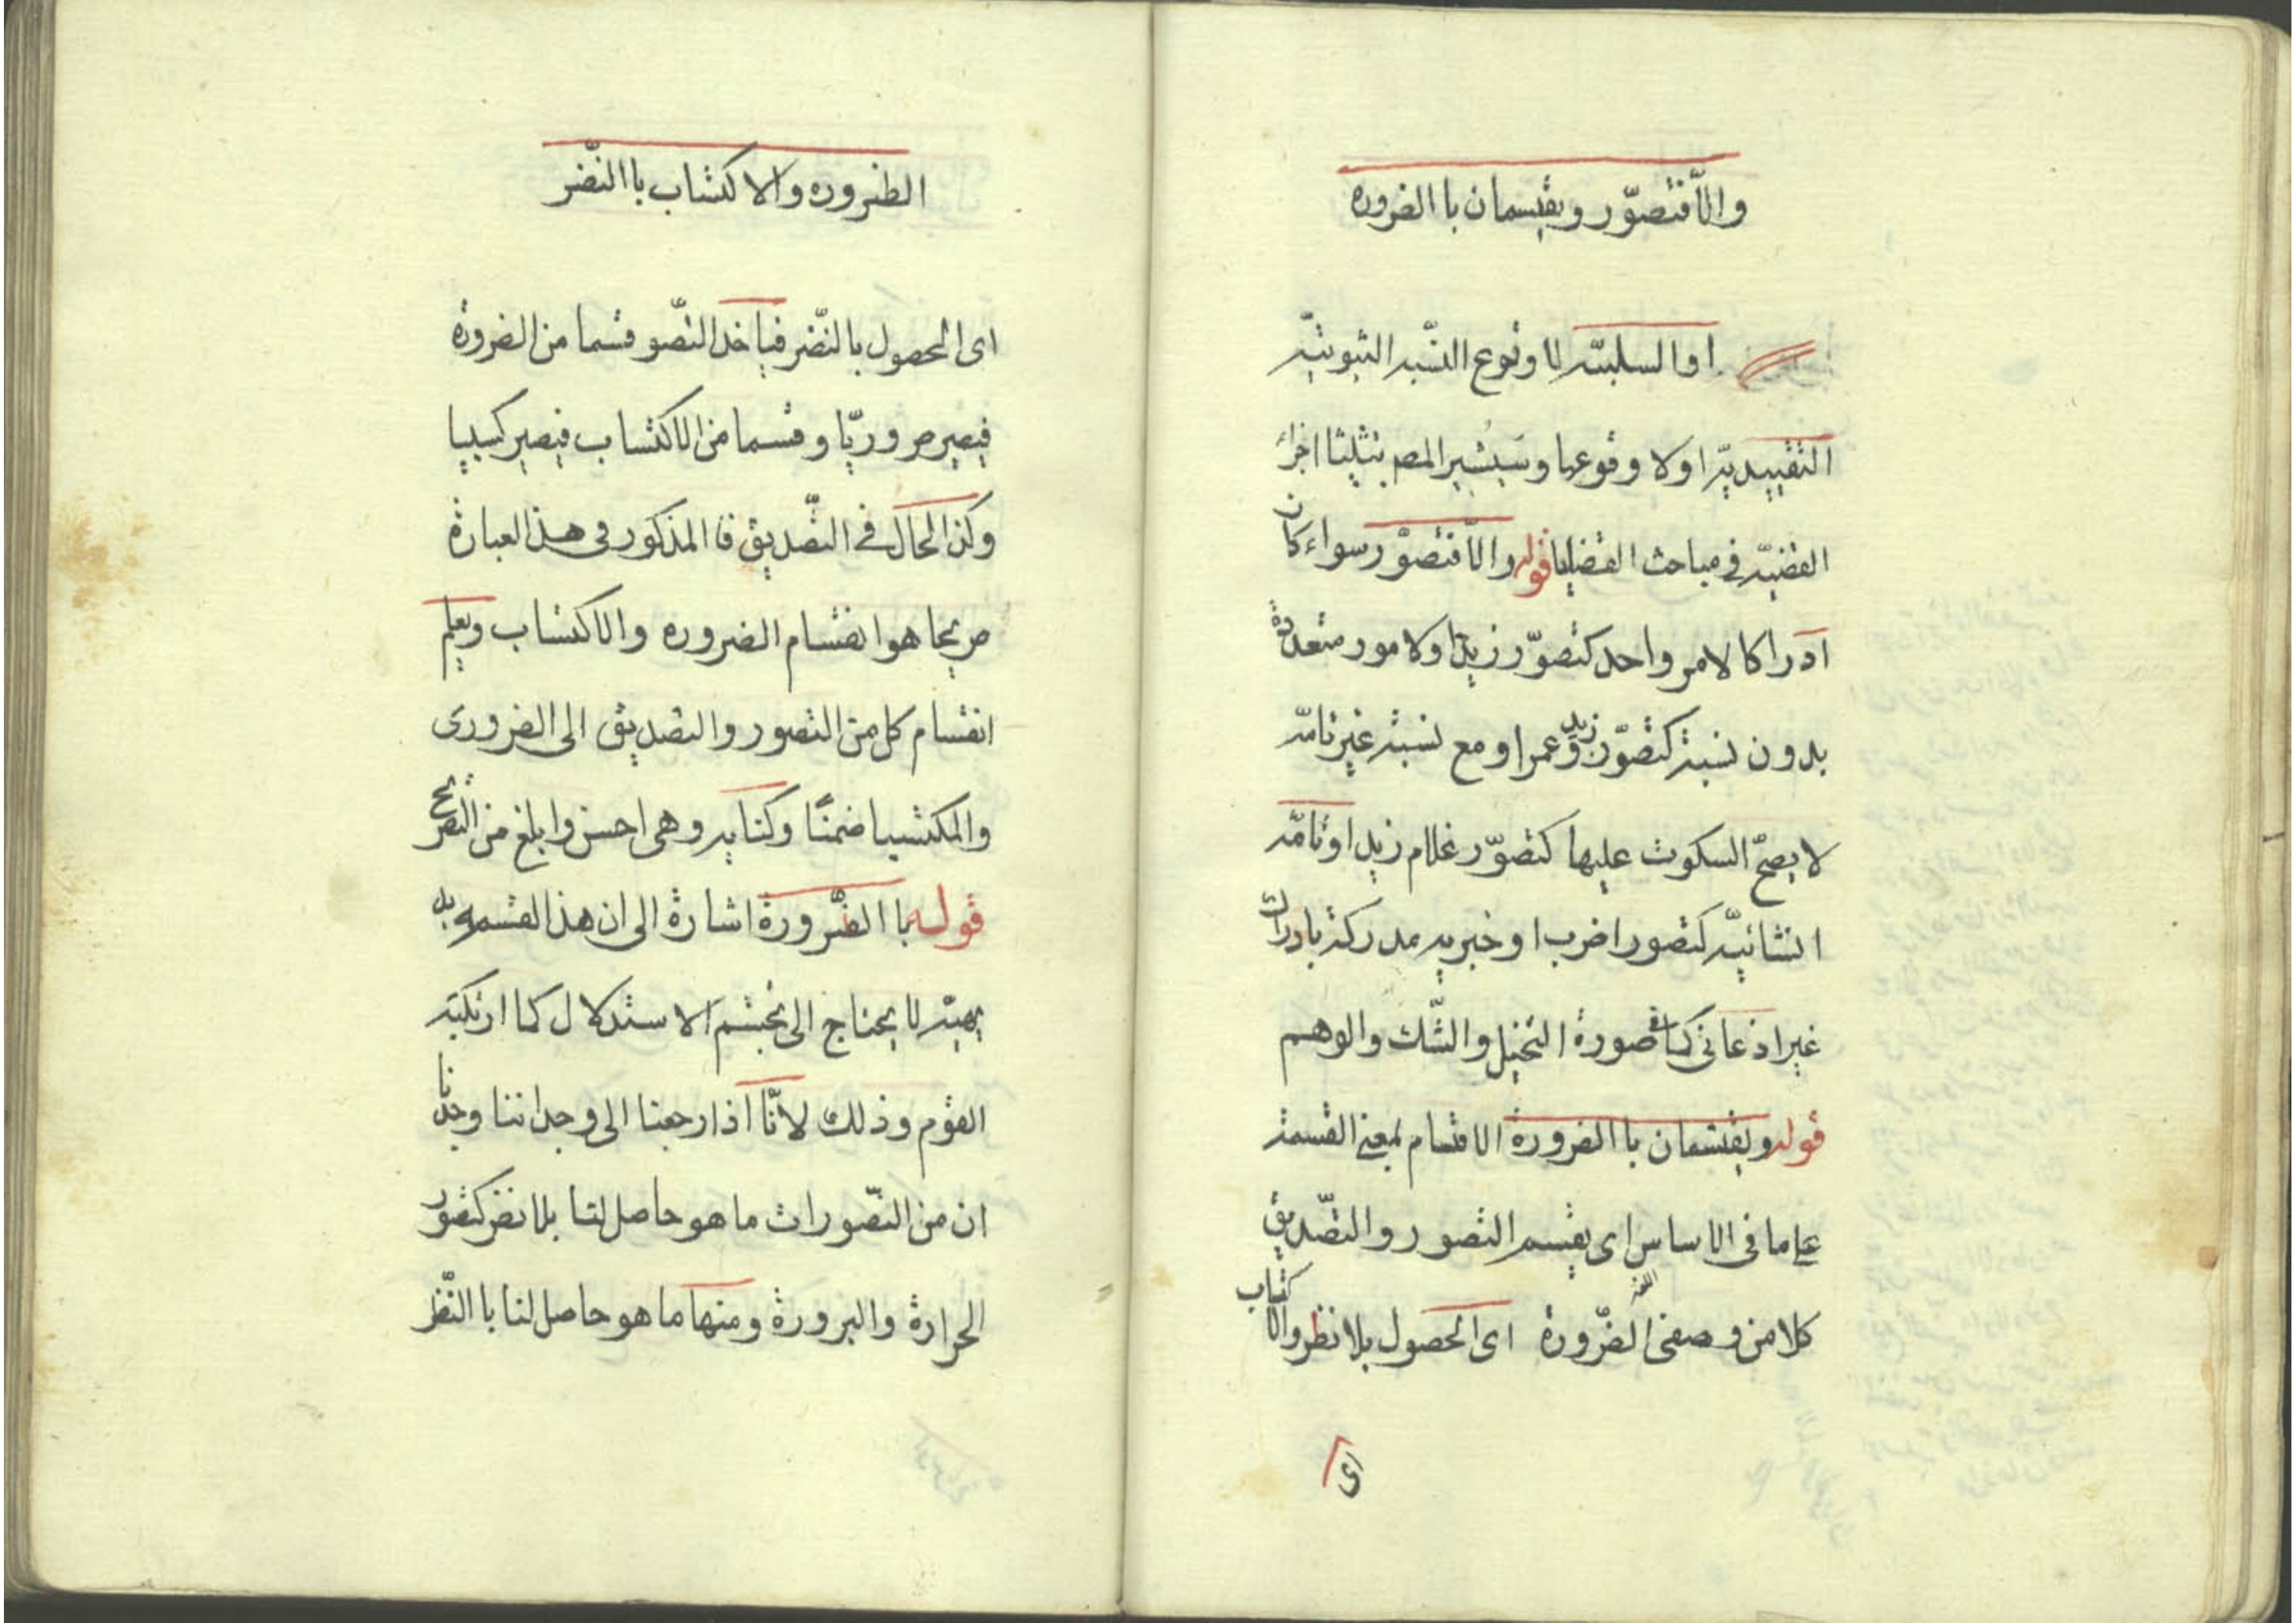 والّا فتصوّر ويقتسمان با الضروره
او السلبيّه لا وقوع النسّبه الثبوتيّه
التقييديّه اولا وقوعها وسيشير المصم بتثليثا اجزاء
القضيّه في مباحث القضايا قوله والّا فتصوّر سواء كان
ادراكا لامر واحد كتصوّر زيد او لامور متعددة
بدون نسبة كتصوّر زيد وعمرا ومع نسبته غير تامّه
لا يصحّ السكوت عليها كتصوّر غلام زيد او تامّه
انشائيّه كتصور اضرب او خبريه مدركة بادراك
غير اذعانى كما فى صورة التخيل والشّك والوهم
قوله ويقتسمان با الضرورة الاقتسام بمعنى القسمة
على ما فى الاساس اى يقتسم التصور والتصّديق
كلا من وصفى الضّرورة اى الحصول بلا نظر والاكتساب
اى
الظروره والاكتساب با النّضر
اى الحصول بالنّضر فياخذ التصّو قسما من الضرورة
فيصير ضروريّا وقسما من الاكتساب فيصير كسبيا
وكذ الحال في التصّديق فا المذكور فى هذ العبارة
صريحا هو انقسام الضروره والاكتساب ويعلم
انقسام كل من التصور والتصديق الى الضرورى
والمكتسبيا ضمنًا وكنايه وهى احسن وابلغ من التصريح
قوله با الضّرورة اشارة الى ان هذ القسمه بد
يهيّه لا يحتاج الى تجشم الاستدلال كما ارتكبه
القوم وذلك لانّا اذا رجعنا الى وجداننا وجدنا
ان من التصّورات ما هو حاصل لنا بلا نضر كتصور
الحرارة والبرورة ومنها ما هو حاصل لنا با النّظر